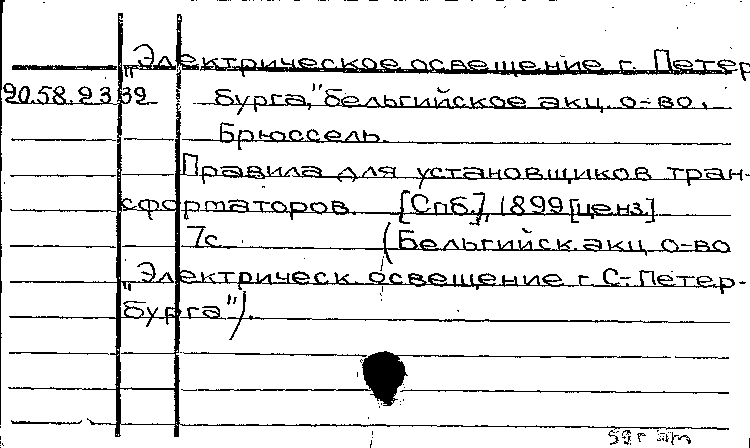 „Электрическое освещение г. Петер
20.58.2332 бурга," бельгийское акц. о-во,
Брюссель.
Правила для установщиков тран-
сформаторов. [Спб.], 1899 [ценз]
7с. (Бельгийск. акц. о-во
„Электрическ. освещение г. С-Петер-
бурга").
59 г